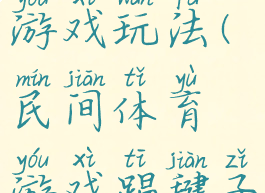 yóu xì wán fǎ
游戏玩法(
mín jiān tǐ yù
民间体育
yóu xì tī jiàn zǐ
游戏踢毽子